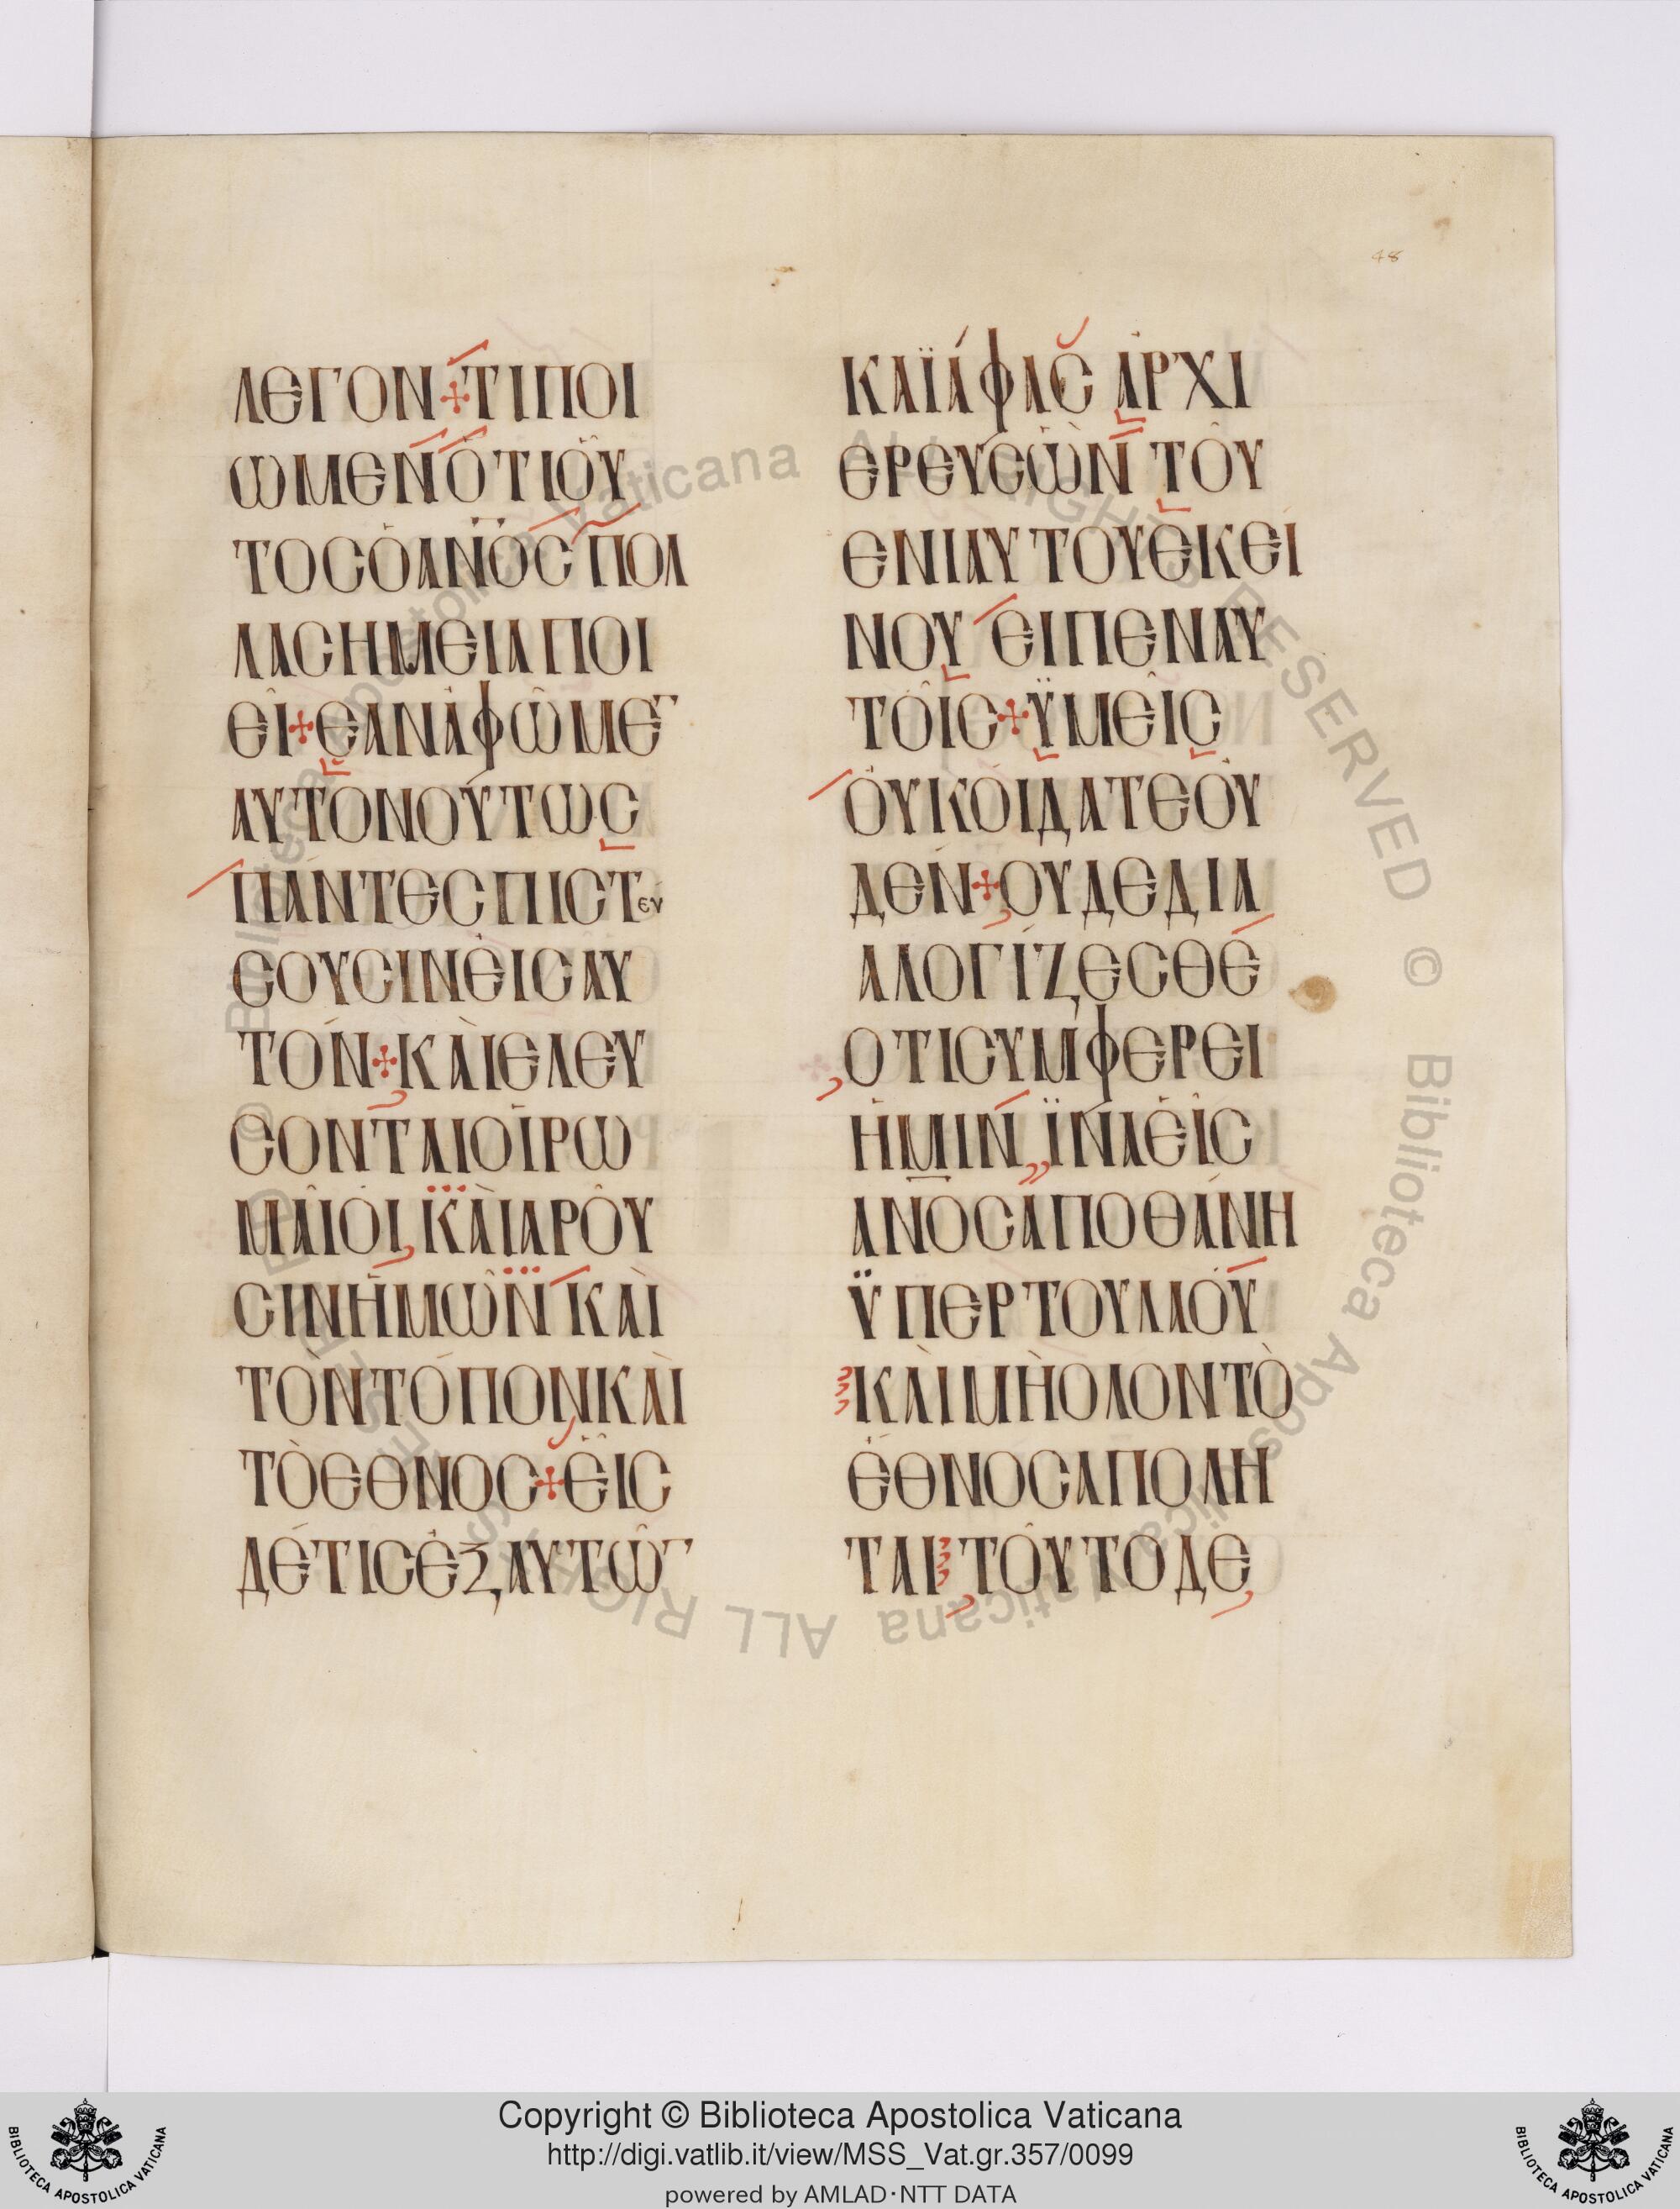 48
ΛΕΓΟΝ ⁜ ΤΙΠΟΙ
ΩΜΕΝ ὉΤΙΟΥ
ΤΟϹὉΑΝΟϹ ΠΟΛ
ΛΑϹΗΜΕΙΑΠΟΙ
ΕῖΙ ⁜ ΕΑΝΑΦΩΜΕ¯
ΑΥΤΟΝΟΥΤΩϹ
ΠΑΝΤΕϹΠΙϹΤΕΥ
ϹΟΥϹΙΝΕΙϹΑΥ
ΤΟΝ ⁜ ΚΑΙΕΛΕΥ
ϹΟΝΤΑΙΟΙΡΩ
ΜΑΙΟΙ, ΚΑΙΑΡΟΥ
ϹΙΝΗΜΩΝ ΚΑΙ
ΤΟΝΤΟΠΟΝΚΑΙ
ΤΟΕΘΝΟϹ ⁜ ΕΙϹ
ΔΕΤΙϹΕΞΑΥΤΩ¯
ΚΑΪΑΦΑϹ ΑΡΧΙ
ΕΡΕΥϹΩΝ ΤΟΥ
ΕΝΙΑΥΤΟΥΕΚΕΙ
ΝΟΥ ΕΙΠΕΝΑΥ
ΤΟΙϹ ⁜ ΫΜΕΙϹ
ΟΥΚΟΙΔΑΤΕΟΥ
ΔΕΝ ⁜ ΟΥΔΕΔΙΑ
ΛΟΓΙΖΕϹΘΕ
ΟΤΙϹΥΜΦΕΡΕΙ
ΗΜΙΝ,, ΪΝΑΕΙϹ
ΑΝΟϹΑΠΟΘΑΝΗ
ΫΠΕΡΤΟΥΛΑΟΥ
ΚΑΙΜΗΟΛΟΝΤΟ
ΕΘΝΟϹΑΠΟΛΗ
ΤΑΙ ΤΟΥΤΟΔΕ
© Biblioteca Apostolica Vaticana ALL RIGHTS RESERVED © Biblioteca Apostolica Vaticana ALL RIGHTS RESERVED
Copyright © Biblioteca Apostolica Vaticana
http://digi.vatlib.it/view/MSS_Vat.gr.357/0099
powered by AMLAD·NTT DATA
BIBLIOTECA APOSTOLICA VATICANA
BIBLIOTECA APOSTOLICA VATICANA